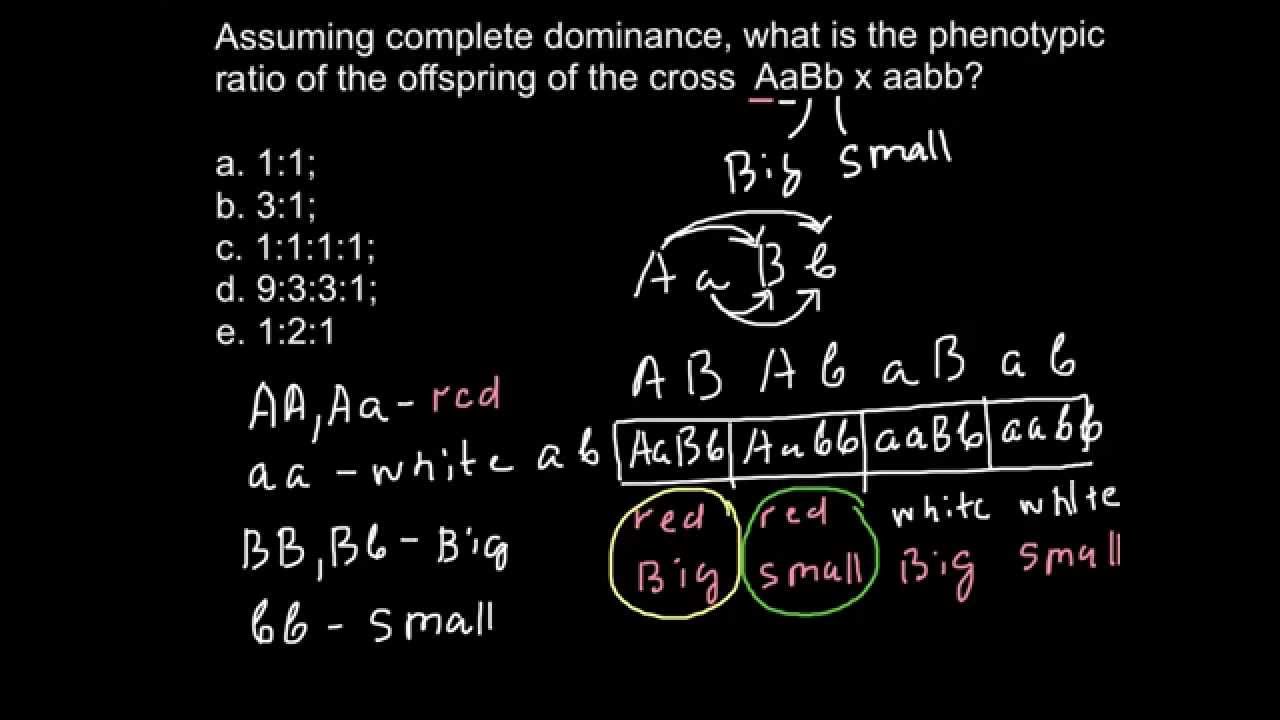 Assuming complete dominance, what is the phenotypic
ratio of the offspring of the cross AaBb x aabb?
a. 1:1;
b. 3:1;
c. 1:1:1:1;
d. 9:3:3:1;
e. 1:2:1
Big small
A a B b
AA, Aa - red
aa - white
BB, Bb - Big
bb - small
AB Ab aB ab
ab AaBb Aabb aaBb aabb
red red white white
Big small Big small